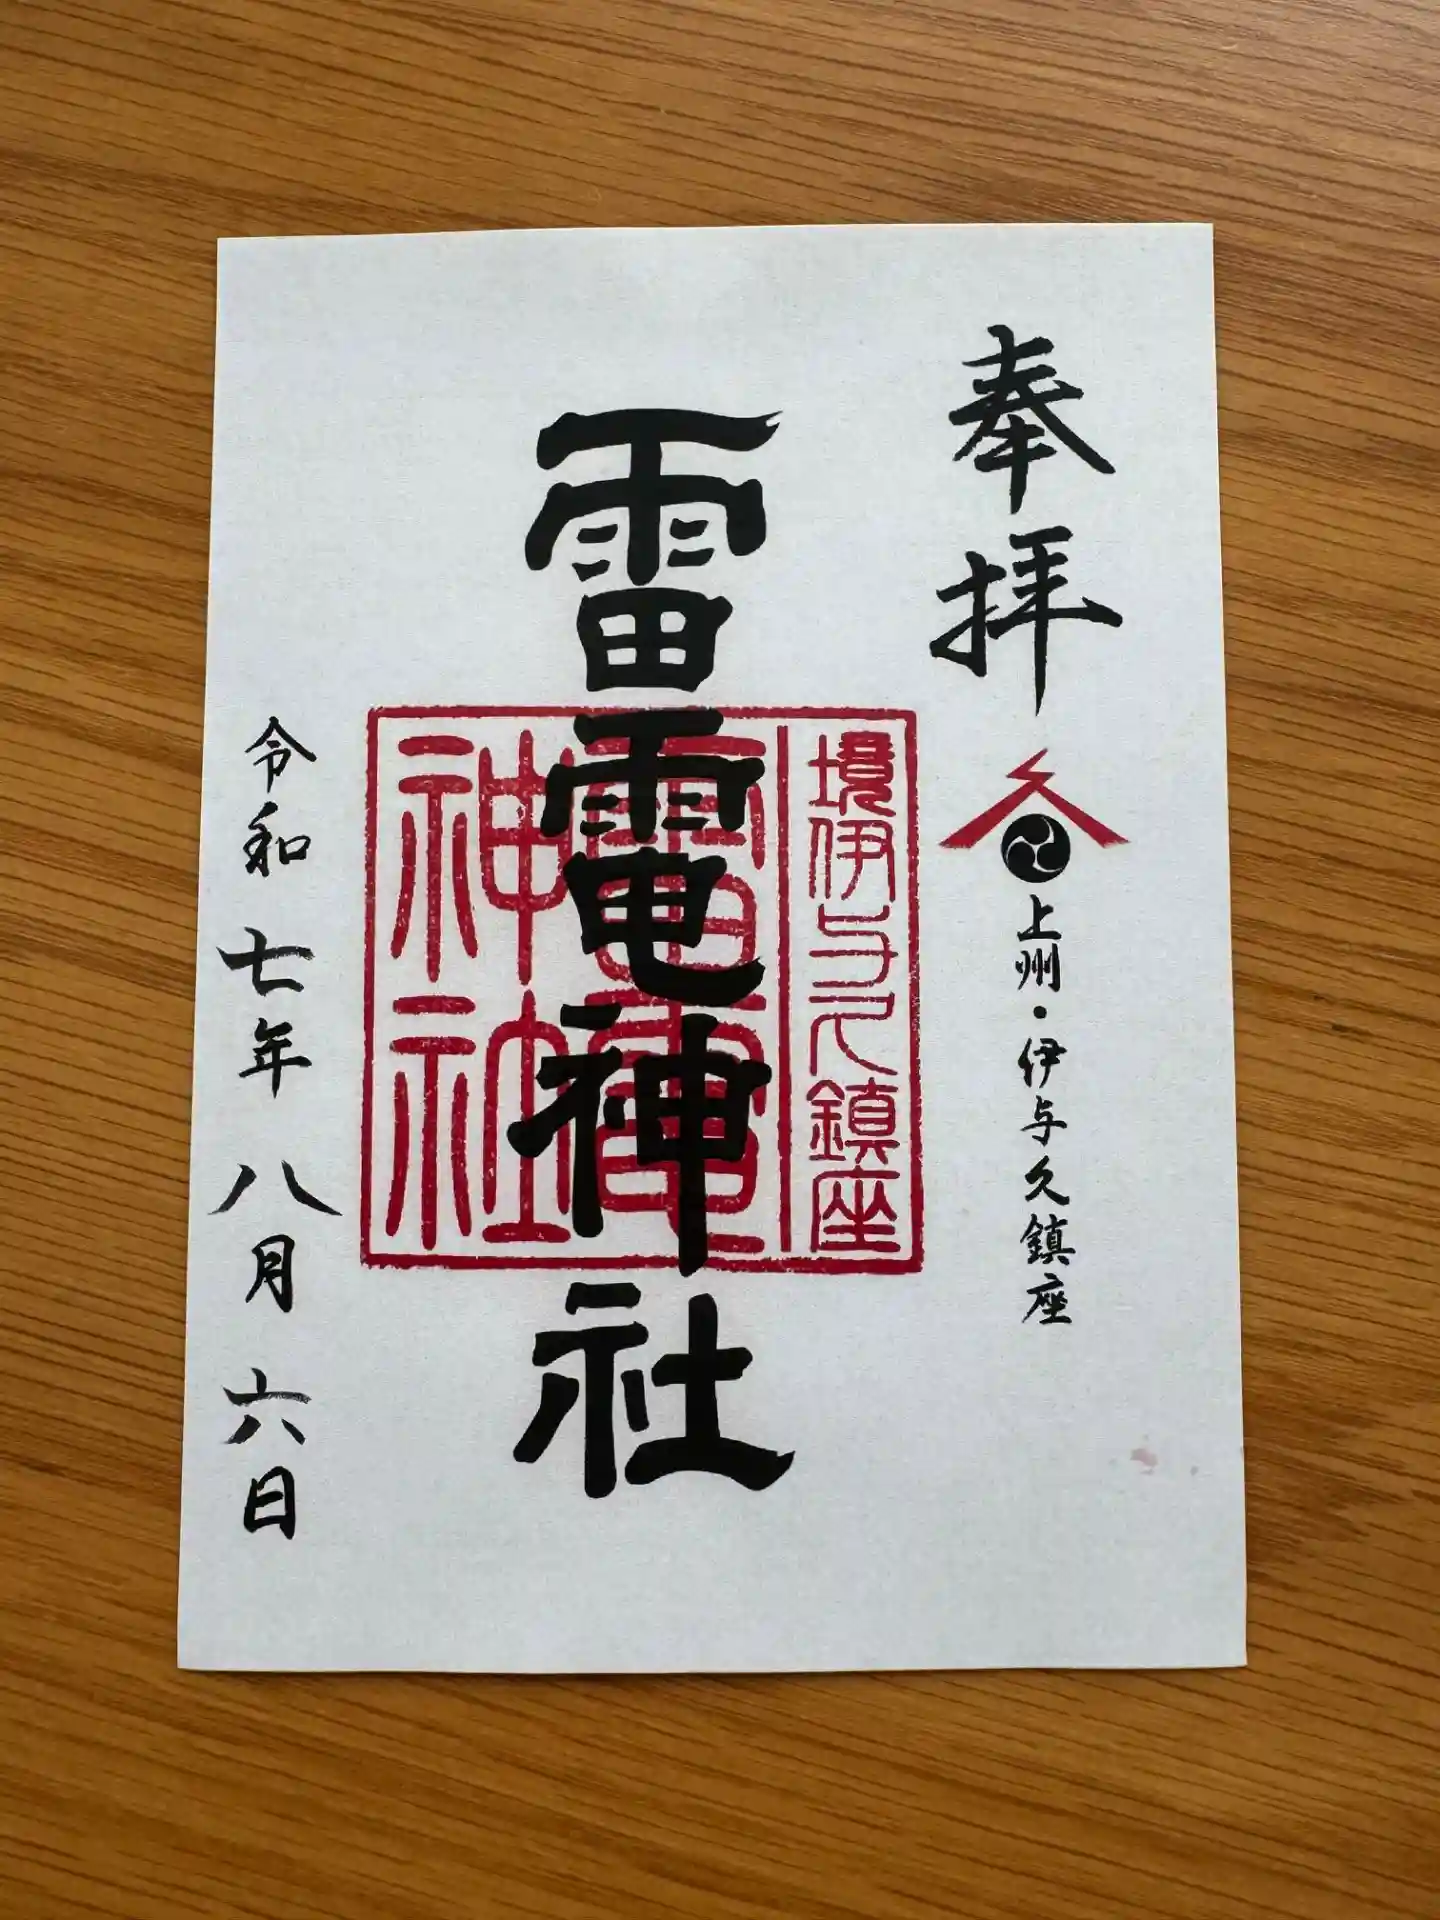 奉拝
上州・伊与久鎮座
境伊与久鎮座
雷電神社
雷電神社
令和七年八月六日